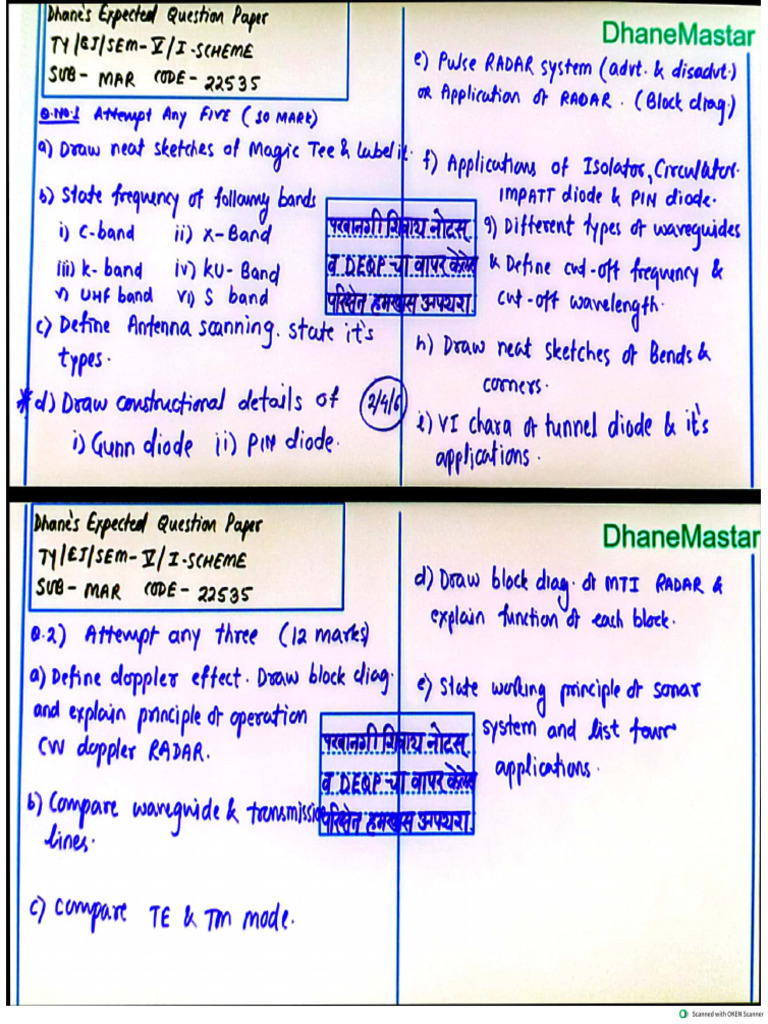 Dhane's Expected Question Paper
TY/EJ/SEM-V/I-SCHEME
SUB- MAR CODE- 22535
DhaneMastar
Q.NO.1 Attempt Any FIVE (10 MARK)
a) Draw neat sketches of Magic Tee & Label it.
b) State frequency of following bands
i) C-band ii) X-Band
iii) K-band iv) KU-Band
v) UHF band vi) S band
c) Define Antenna scanning. state it's
types.
*d) Draw constructional details of (2/4/6)
i) Gunn diode ii) PIN diode.
e) Pulse RADAR system (advt. & disadvt.)
or Application of RADAR. (Block diag.)
f) Applications of Isolator, Circulator.
IMPATT diode & PIN diode.
g) Different types of waveguides
& Define cut-off frequency &
cut-off wavelength.
h) Draw neat sketches of Bends &
corners.
i) VI chara of tunnel diode & it's
applications.
परवानगी शिवाय नोटस्
व DEQP चा वापर केलेस
परिसेन हमखास अपयश.
Dhane's Expected Question Paper
TY/EJ/SEM-V/I-SCHEME
SUB- MAR CODE- 22535
DhaneMastar
Q.2) Attempt any three (12 marks)
a) Define doppler effect. Draw block diag.
and explain principle of operation
CW doppler RADAR.
b) Compare waveguide & transmission
lines.
c) Compare TE & TM mode.
d) Draw block diag. of MTI RADAR &
explain function of each block.
e) State working principle of sonar
system and list four
applications.
परवानगी शिवाय नोटस्
व DEQP चा वापर केलेस
परिसेन हमखास अपयश.
Scanned with OKEN Scanner